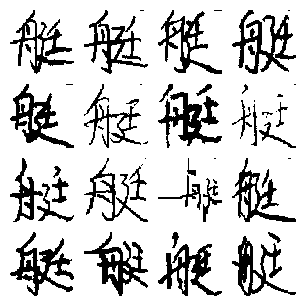 艇艇艇艇
艇艇艇艇
艇艇艇艇
艇艇艇艇